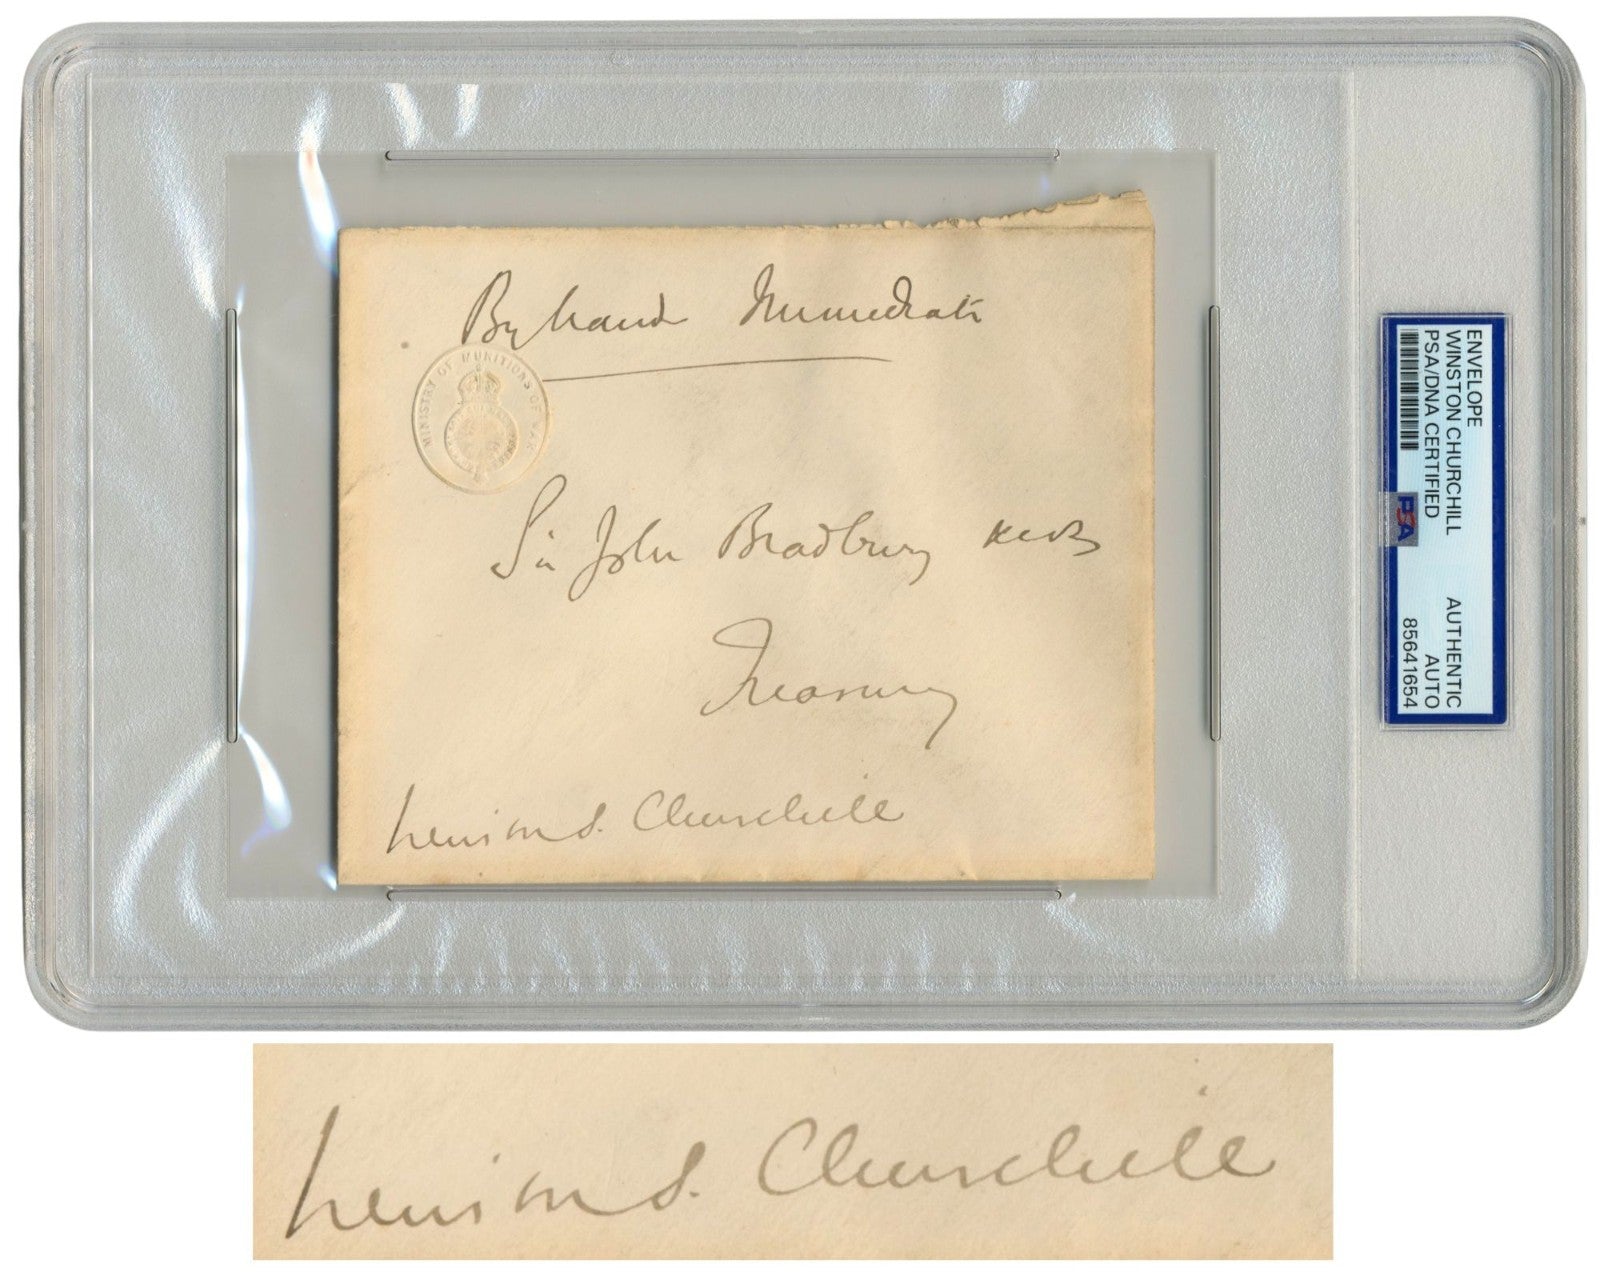 By hand Immediate
MINISTRY OF MUNITIONS OF WAR
Sir John Bradbury KCB
Treasury
Winston S. Churchill
ENVELOPE
WINSTON CHURCHILL AUTHENTIC
PSA/DNA CERTIFIED AUTO
85641654
PSA
Winston S. Churchill